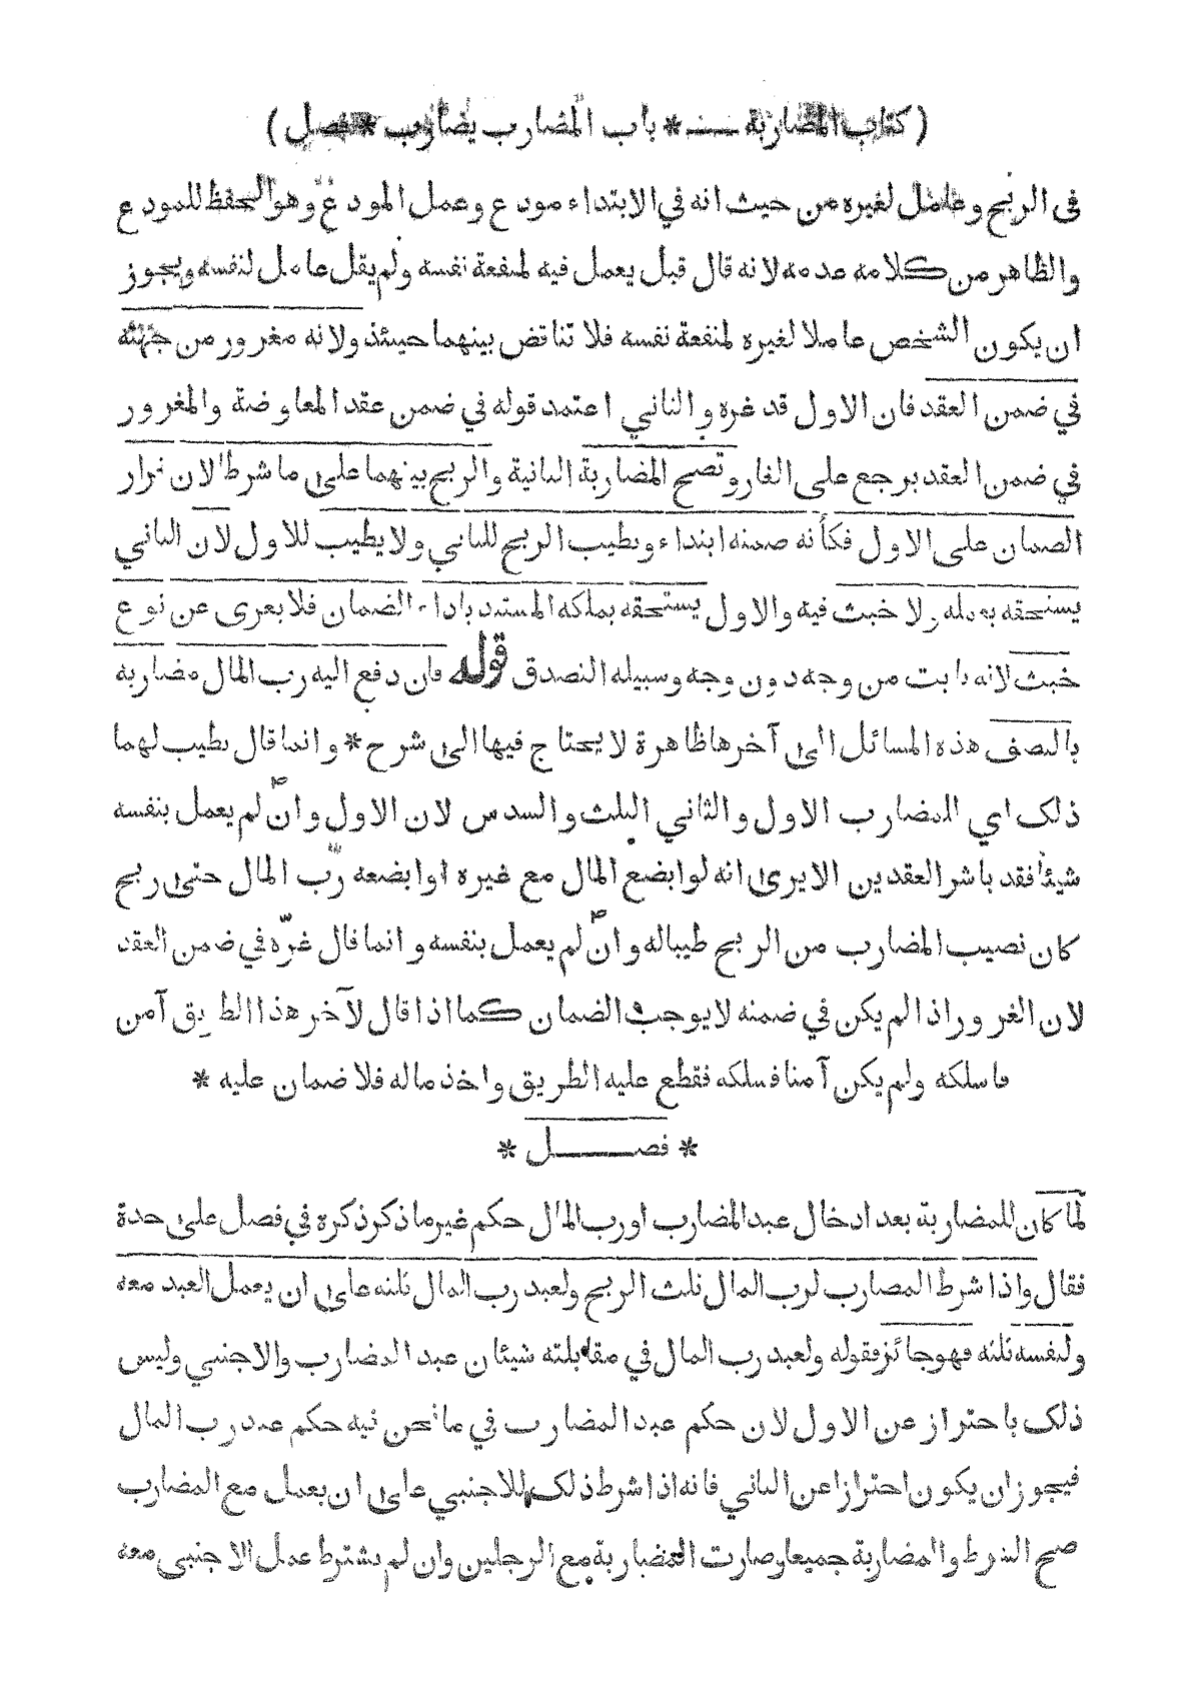 ( كتاب المضاربة ــــ * باب المضارب يضارب * فصل )
فى الربح وعامل لغيره من حيث انه في الابتداء مودع وعمل المودع وهو الحفظ للمودع
والظاهر من كلامه عدمه لانه قال قبل يعمل فيه لمنفعة نفسه ولم يقل عامل لنفسه ويجوز
ان يكون الشخص عاملا لغيره لمنفعة نفسه فلا تناقض بينهما حينئذ ولانه مغرور من جهته
في ضمن العقد فان الاول قد غره والثاني اعتمد قوله في ضمن عقد المعاوضة والمغرور
في ضمن العقد يرجع على الغار وتصح المضاربة الثانية والربح بينهما على ما شرطا لان قرار
الضمان على الاول فكأنه ضمنه ابتداء ويطيب الربح للثاني ولا يطيب للاول لان الثاني
يستحقه بعمله ولا خبث فيه والاول يستحقه بملكه المستند باداء الضمان فلا يعرى عن نوع
خبث لانه ثابت من وجه دون وجه وسبيله التصدق قوله فان دفع اليه رب المال مضاربة
بالنصف هذه المسائل الى آخرها ظاهرة لا يحتاج فيها الى شرح * وانما قال يطيب لهما
ذلك اي المضارب الاول والثاني الثلث والسدس لان الاول وان لم يعمل بنفسه
شيئا فقد باشر العقدين الا يرى انه لو ابضع المال مع غيره او ابضعه رب المال حتى ربح
كان نصيب المضارب من الربح طيبا له وان لم يعمل بنفسه وانما قال غرّه في ضمن العقد
لان الغرور اذا لم يكن في ضمنه لا يوجب الضمان كما اذا قال لآخر هذا الطريق آمن
فاسلكه ولم يكن آمنا فسلكه فقطع عليه الطريق واخذ ماله فلا ضمان عليه *
* فصـــــل *
لما كان للمضاربة بعد ادخال عبد المضارب او رب المال حكم غير ما ذكر ذكره في فصل على حدة
فقال واذا شرط المضارب لرب المال ثلث الربح ولعبد رب المال ثلثه على ان يعمل العبد معه
ولنفسه ثلثه فهو جائز فقوله ولعبد رب المال في مقابلته شيئان عبد المضارب والاجنبي وليس
ذلك باحتراز عن الاول لان حكم عبد المضارب في ما نحن فيه حكم عبد رب المال
فيجوز ان يكون احترازا عن الثاني فانه اذا شرط ذلك للاجنبي على ان يعمل مع المضارب
صح الشرط والمضاربة جميعا وصارت المضاربة مع الرجلين وان لم يشترط عمل الاجنبي معه